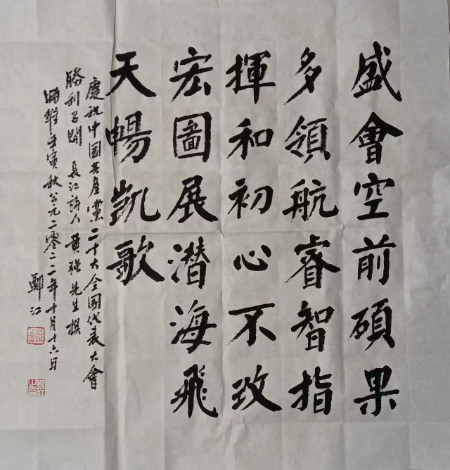 盛會空前碩果
多領航睿智指
揮和初心不改
宏圖展潜海飛
天暢凱歌
慶祝中國共産黨二十大全國代表大會
勝利召開 長江詩人黄強先生撰
時維壬寅秋公元二零二二年十月十六日
鄭江